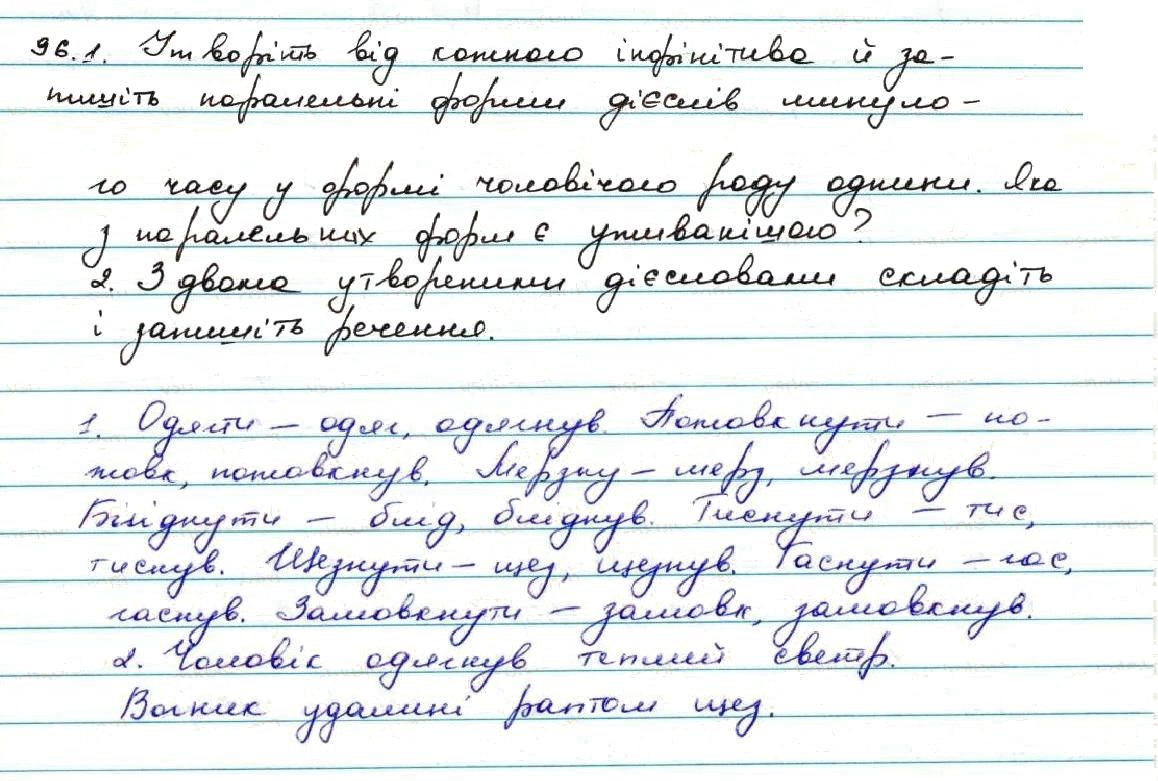 96.1. Утворіть від кожного інфінітива й за-
пишіть паралельні форми дієслів минуло-
го часу у формі чоловічого роду однини. Яка
з паралельних форм є уживанішою?
2. З двома утвореними дієсловами складіть
і запишіть речення.
1. Одягти – одяг, одягнув. Пожовкнути – по-
жовк, пожовкнув. Мерзну – мерз, мерзнув.
Бліднути – блід, бліднув. Тиснути – тис,
тиснув. Щезнути – щез, щезнув. Гаснути – гас,
гаснув. Замовкнути – замовк, замовкнув.
2. Чоловік одягнув теплий светр.
Вогник удалині раптом щез.